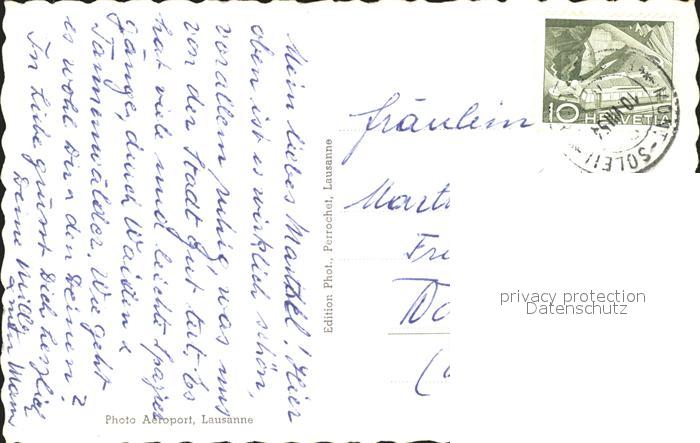 Mein liebes Marteli! Hier
oben ist es wirklich schön,
vor allem ruhig, was uns
von der Stadt gut tut. Es
hat viele und leichte Spazier
gänge, durch Weiden &
Tannenwälder. Wie geht
es wohl Dir & den Deinen?
In Liebe grüsst Dich herzlich
Deine Milly
Photo Aéroport, Lausanne
Edition Phot., Perrochet, Lausanne
Fräulein
10 HELVETIA
MONT-SOLEIL
privacy protection
Datenschutz